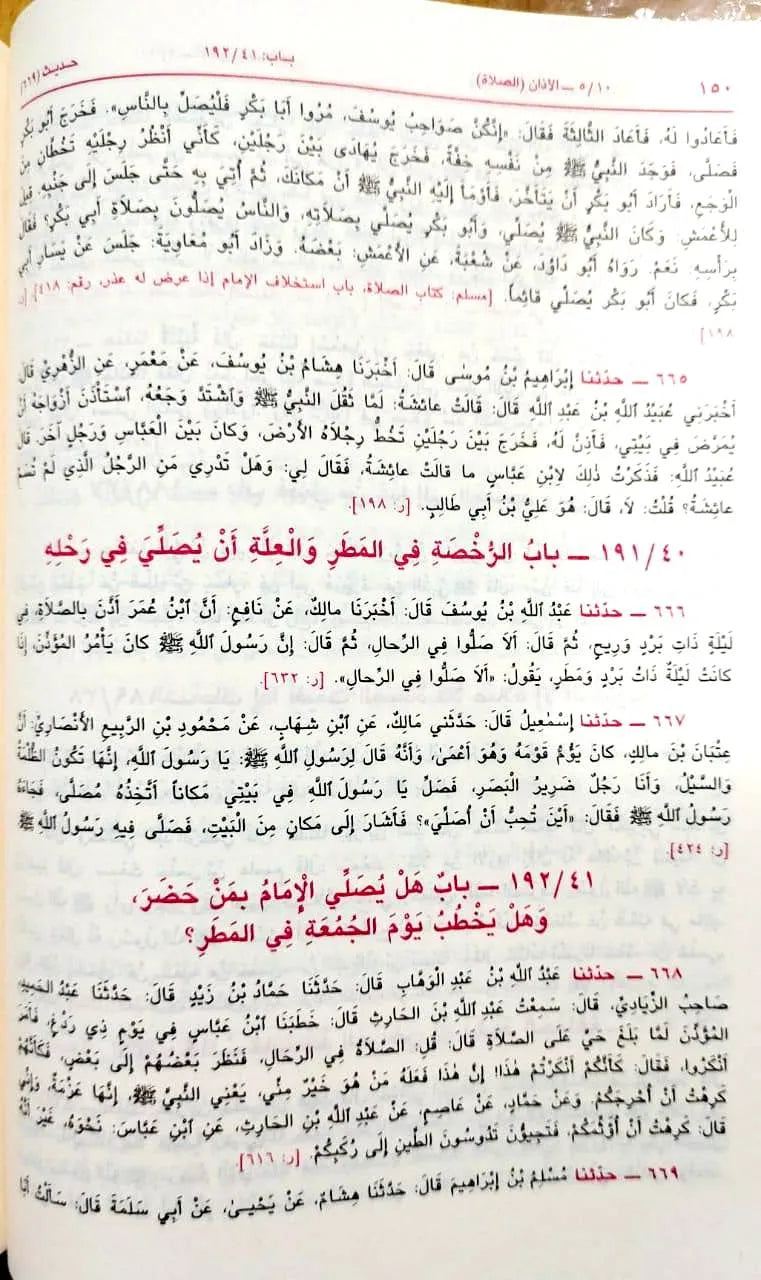 ١٥٠ ٥/١٠ ـ الأذان (الصلاة) باب: ١٩٢/٤١ حديث (٦٦٩)
فَأَعَادُوا لَهُ، فَأَعَادَ الثَّالِثَةَ فَقَالَ: «إِنَّكُنَّ صَوَاحِبُ يُوسُفَ، مُرُوا أَبَا بَكْرٍ فَلْيُصَلِّ بِالنَّاسِ». فَخَرَجَ أَبُو بَكْرٍ
فَصَلَّى، فَوَجَدَ النَّبِيُّ ﷺ مِنْ نَفْسِهِ خِفَّةً، فَخَرَجَ يُهَادَى بَيْنَ رَجُلَيْنِ، كَأَنِّي أَنْظُرُ رِجْلَيْهِ تَخُطَّانِ مِنَ
الْوَجَعِ، فَأَرَادَ أَبُو بَكْرٍ أَنْ يَتَأَخَّرَ، فَأَوْمَأَ إِلَيْهِ النَّبِيُّ ﷺ أَنْ مَكَانَكَ، ثُمَّ أُتِيَ بِهِ حَتَّى جَلَسَ إِلَى جَنْبِهِ. قِيلَ
لِلأَعْمَشِ: وَكَانَ النَّبِيُّ ﷺ يُصَلِّي، وَأَبُو بَكْرٍ يُصَلِّي بِصَلَاتِهِ، وَالنَّاسُ يُصَلُّونَ بِصَلَاةِ أَبِي بَكْرٍ؟ فَقَالَ
بِرَأْسِهِ: نَعَمْ. رَوَاهُ أَبُو دَاوُدَ، عَنْ شُعْبَةَ، عَنِ الأَعْمَشِ: بَعْضَهُ. وَزَادَ أَبُو مُعَاوِيَةَ: جَلَسَ عَنْ يَسَارِ أَبِي
بَكْرٍ، فَكَانَ أَبُو بَكْرٍ يُصَلِّي قَائِماً. [مسلم: كتاب الصلاة، باب استخلاف الإمام إذا عرض له عذر، رقم: ٤١٨]. [ر:
١٩٨]
٦٦٥ ـ حدّثنا إِبْرَاهِيمُ بْنُ مُوسَى قَالَ: أَخْبَرَنَا هِشَامُ بْنُ يُوسُفَ، عَنْ مَعْمَرٍ، عَنِ الزُّهْرِيِّ قَالَ:
أَخْبَرَنِي عُبَيْدُ اللَّهِ بْنُ عَبْدِ اللَّهِ قَالَ: قَالَتْ عَائِشَةُ: لَمَّا ثَقُلَ النَّبِيُّ ﷺ وَاشْتَدَّ وَجَعُهُ، اسْتَأْذَنَ أَزْوَاجَهُ أَنْ
يُمَرَّضَ فِي بَيْتِي، فَأَذِنَّ لَهُ، فَخَرَجَ بَيْنَ رَجُلَيْنِ تَخُطُّ رِجْلَاهُ الأَرْضَ، وَكَانَ بَيْنَ الْعَبَّاسِ وَرَجُلٍ آخَرَ. قَالَ
عُبَيْدُ اللَّهِ: فَذَكَرْتُ ذَلِكَ لِابْنِ عَبَّاسٍ مَا قَالَتْ عَائِشَةُ، فَقَالَ لِي: وَهَلْ تَدْرِي مَنِ الرَّجُلُ الَّذِي لَمْ تُسَمِّ
عَائِشَةُ؟ قُلْتُ: لَا، قَالَ: هُوَ عَلِيُّ بْنُ أَبِي طَالِبٍ. [ر: ١٩٨].
١٩١/٤٠ ـ بابُ الرُّخْصَةِ فِي المَطَرِ وَالْعِلَّةِ أَنْ يُصَلِّيَ فِي رَحْلِهِ
٦٦٦ ـ حدّثنا عَبْدُ اللَّهِ بْنُ يُوسُفَ قَالَ: أَخْبَرَنَا مَالِكٌ، عَنْ نَافِعٍ: أَنَّ ابْنَ عُمَرَ أَذَّنَ بِالصَّلَاةِ، فِي
لَيْلَةٍ ذَاتِ بَرْدٍ وَرِيحٍ، ثُمَّ قَالَ: أَلَا صَلُّوا فِي الرِّحَالِ، ثُمَّ قَالَ: إِنَّ رَسُولَ اللَّهِ ﷺ كَانَ يَأْمُرُ المُؤَذِّنَ، إِذَا
كَانَتْ لَيْلَةٌ ذَاتُ بَرْدٍ وَمَطَرٍ، يَقُولُ: «أَلَا صَلُّوا فِي الرِّحَالِ». [ر: ٦٣٢].
٦٦٧ ـ حدّثنا إِسْمَعِيلُ قَالَ: حَدَّثَنِي مَالِكٌ، عَنِ ابْنِ شِهَابٍ، عَنْ مَحْمُودِ بْنِ الرَّبِيعِ الأَنْصَارِيِّ: أَنَّ
عِتْبَانَ بْنَ مَالِكٍ، كَانَ يَؤُمُّ قَوْمَهُ وَهُوَ أَعْمَى، وَأَنَّهُ قَالَ لِرَسُولِ اللَّهِ ﷺ: يَا رَسُولَ اللَّهِ، إِنَّهَا تَكُونُ الظُّلْمَةُ
وَالسَّيْلُ، وَأَنَا رَجُلٌ ضَرِيرُ الْبَصَرِ، فَصَلِّ يَا رَسُولَ اللَّهِ فِي بَيْتِي مَكَاناً أَتَّخِذُهُ مُصَلًّى، فَجَاءَهُ
رَسُولُ اللَّهِ ﷺ فَقَالَ: «أَيْنَ تُحِبُّ أَنْ أُصَلِّيَ»؟ فَأَشَارَ إِلَى مَكَانٍ مِنَ الْبَيْتِ، فَصَلَّى فِيهِ رَسُولُ اللَّهِ ﷺ
[ر: ٤٢٤]
١٩٢/٤١ ـ بابٌ هَلْ يُصَلِّي الْإِمَامُ بِمَنْ حَضَرَ،
وَهَلْ يَخْطُبُ يَوْمَ الجُمُعَةِ فِي المَطَرِ؟
٦٦٨ ـ حدّثنا عَبْدُ اللَّهِ بْنُ عَبْدِ الْوَهَّابِ قَالَ: حَدَّثَنَا حَمَّادُ بْنُ زَيْدٍ قَالَ: حَدَّثَنَا عَبْدُ الحَمِيدِ
صَاحِبُ الزِّيَادِيِّ، قَالَ: سَمِعْتُ عَبْدَ اللَّهِ بْنَ الحَارِثِ قَالَ: خَطَبَنَا ابْنُ عَبَّاسٍ فِي يَوْمٍ ذِي رَدْغٍ، فَأَمَرَ
المُؤَذِّنَ لَمَّا بَلَغَ حَيَّ عَلَى الصَّلَاةِ قَالَ: قُلِ: الصَّلَاةُ فِي الرِّحَالِ، فَنَظَرَ بَعْضُهُمْ إِلَى بَعْضٍ، فَكَأَنَّهُمْ
أَنْكَرُوا، فَقَالَ: كَأَنَّكُمْ أَنْكَرْتُمْ هَذَا! إِنَّ هَذَا فَعَلَهُ مَنْ هُوَ خَيْرٌ مِنِّي، يَعْنِي النَّبِيَّ ﷺ، إِنَّهَا عَزْمَةٌ، وَإِنِّي
كَرِهْتُ أَنْ أُحْرِجَكُمْ. وَعَنْ حَمَّادٍ، عَنْ عَاصِمٍ، عَنْ عَبْدِ اللَّهِ بْنِ الحَارِثِ، عَنِ ابْنِ عَبَّاسٍ: نَحْوَهُ، غَيْرَ أَنَّهُ
قَالَ: كَرِهْتُ أَنْ أُؤَثِّمَكُمْ، فَتَجِيؤُنَ تَدُوسُونَ الطِّينَ إِلَى رُكَبِكُمْ. [ر: ٦١٦].
٦٦٩ ـ حدّثنا مُسْلِمُ بْنُ إِبْرَاهِيمَ قَالَ: حَدَّثَنَا هِشَامٌ، عَنْ يَحْيَى، عَنْ أَبِي سَلَمَةَ قَالَ: سَأَلْتُ أَبَا